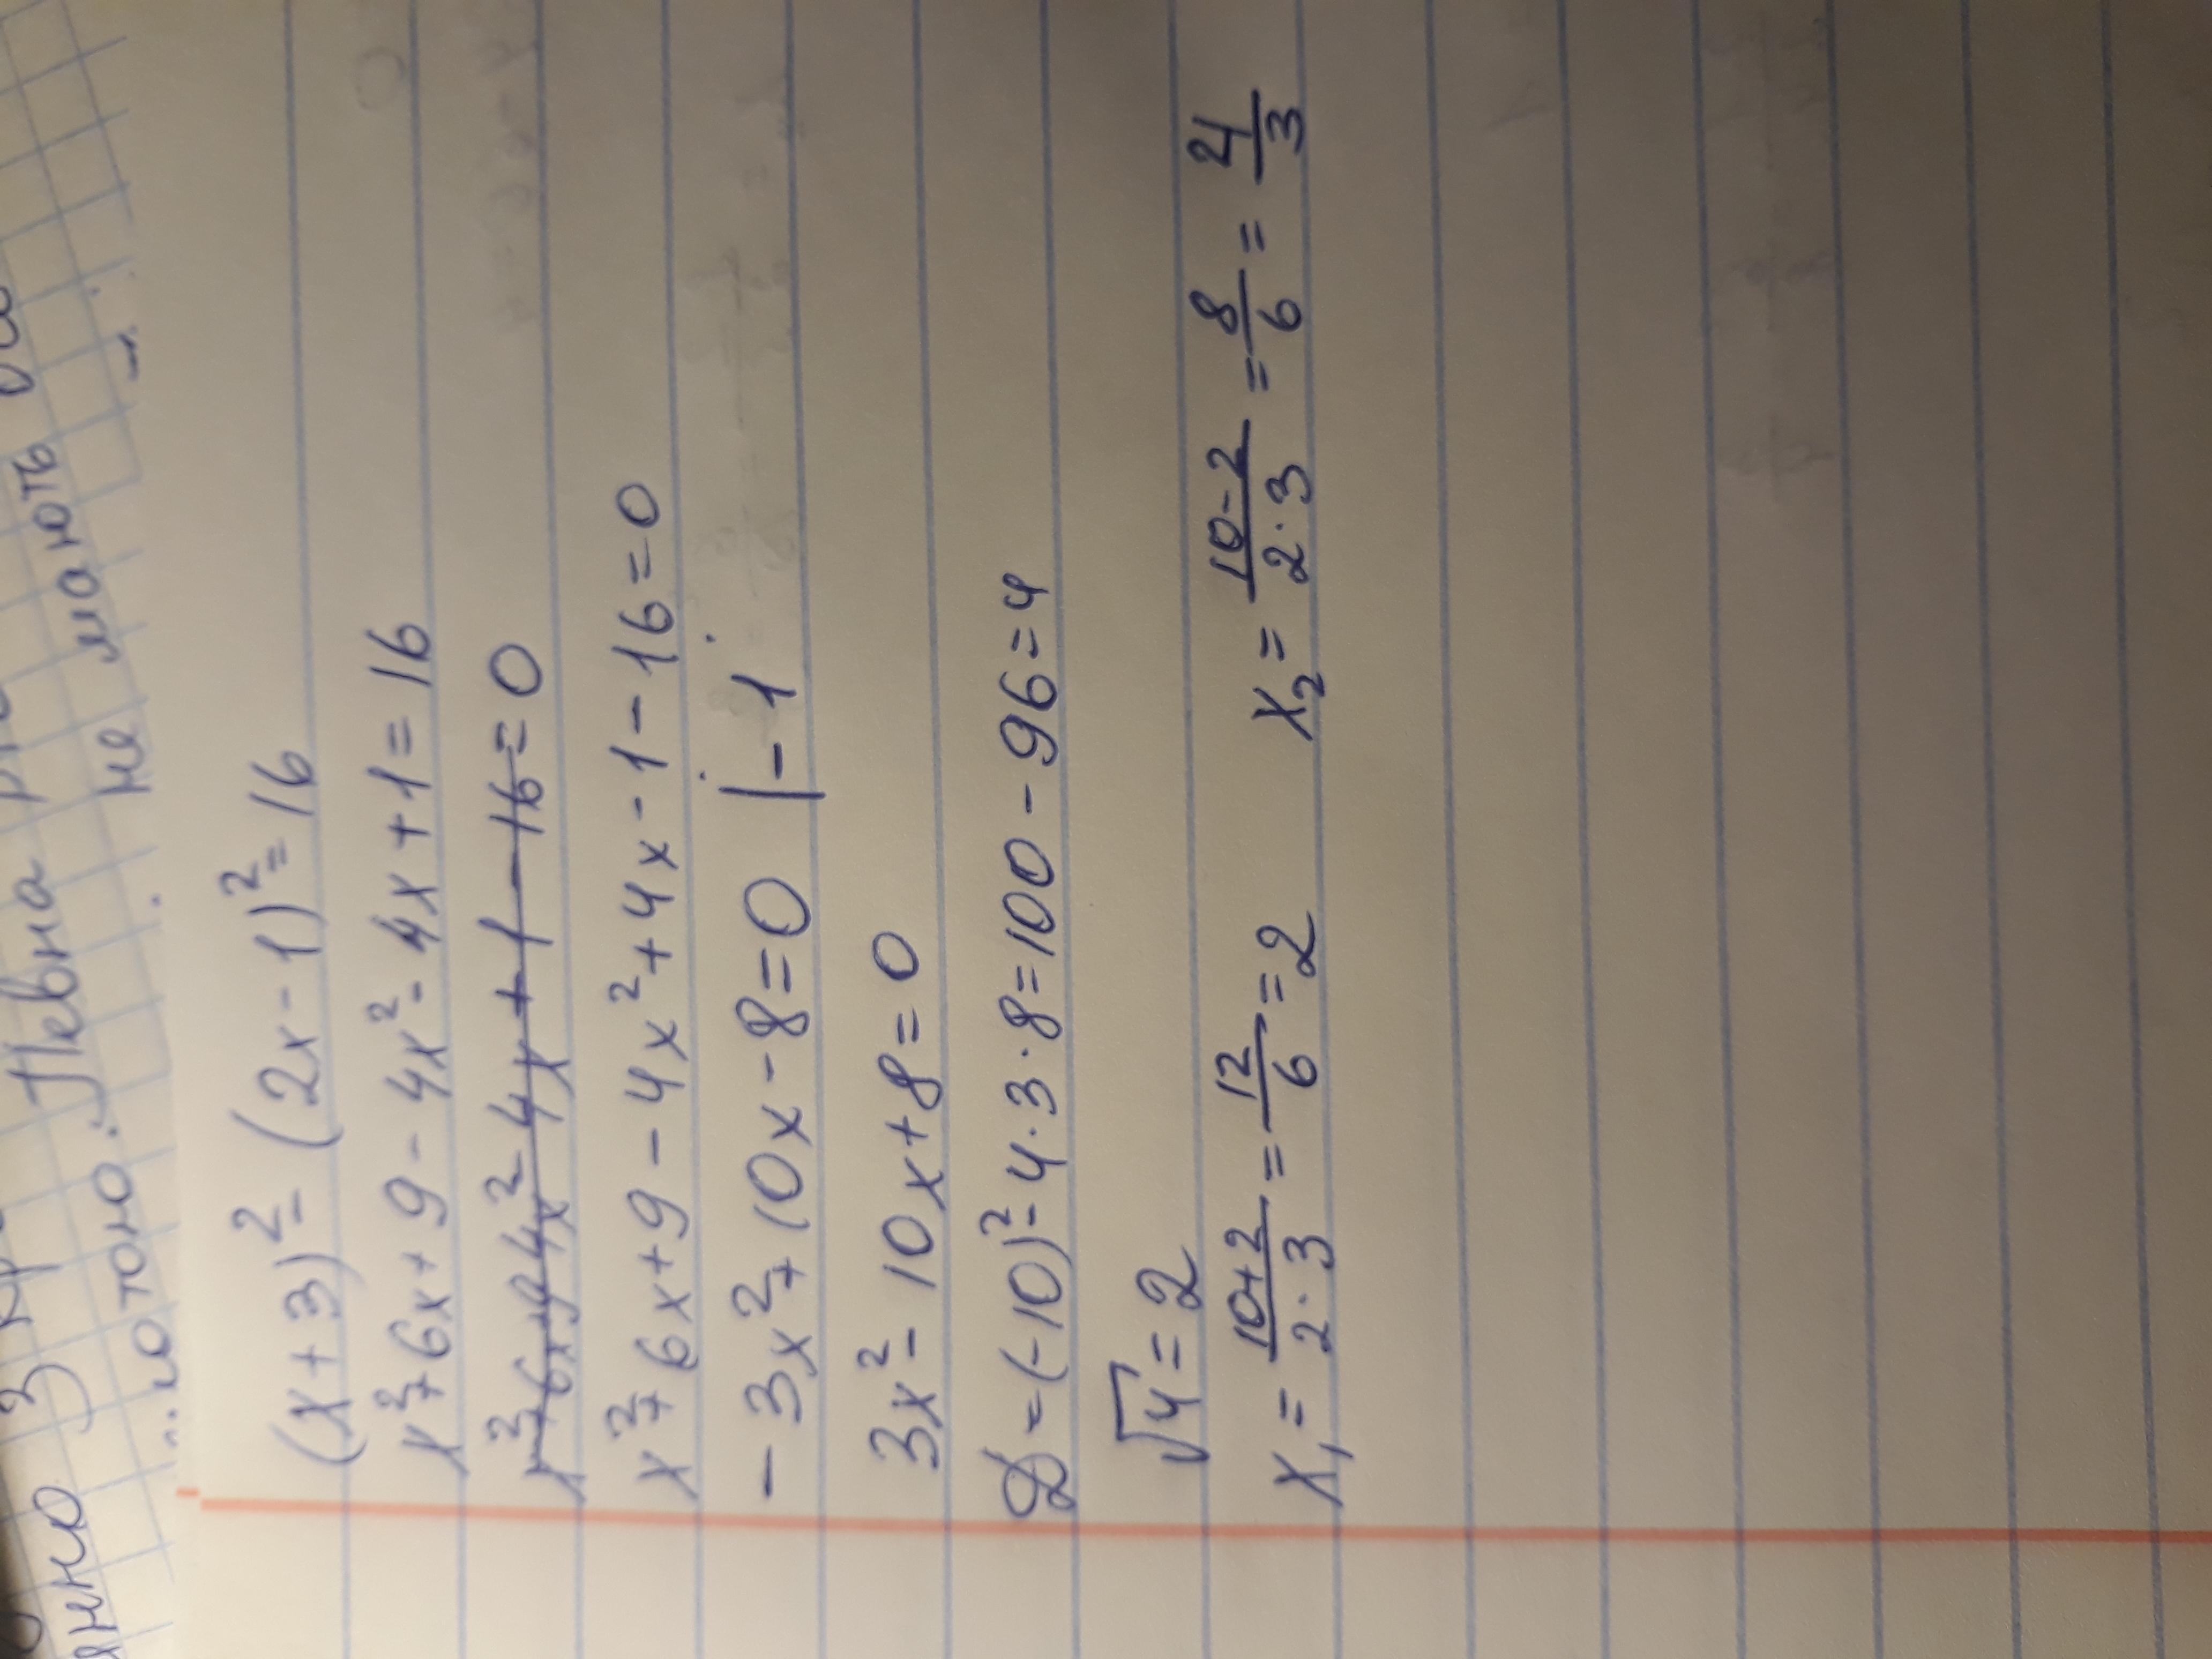 Певна
не мають
(x+3)²-(2x-1)²=16
x²+6x+9-4x²-4x+1=16
x²+6x+9-4x²-4x+1-16=0
x²+6x+9-4x²+4x-1-16=0
-3x²+10x-8=0 |:-1
3x²-10x+8=0
D=(-10)²-4·3·8=100-96=4
√4=2
x₁=\frac{10+2}{2·3}=\frac{12}{6}=2 x₂=\frac{10-2}{2·3}=\frac{8}{6}=\frac{4}{3}